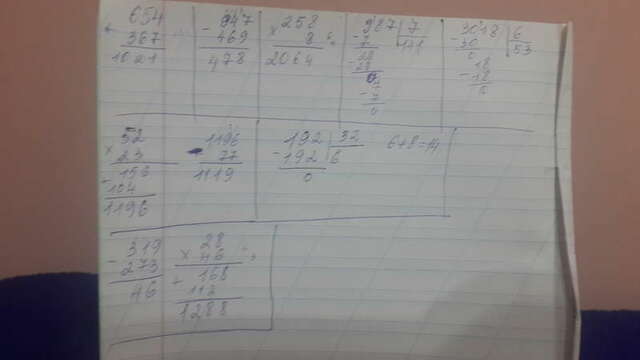 654
+ 367
1021
- 947
469
478
× 258
8
2064
987 | 7
- 7
141
28
- 28
7
- 7
0
3018 | 6
- 30
53
0
18
- 18
0
52
× 23
156
104
1196
- 1196
77
1119
192 | 32
- 192 | 6
0
6+8=14
- 319
273
46
28
× 46
168
+ 112
1288